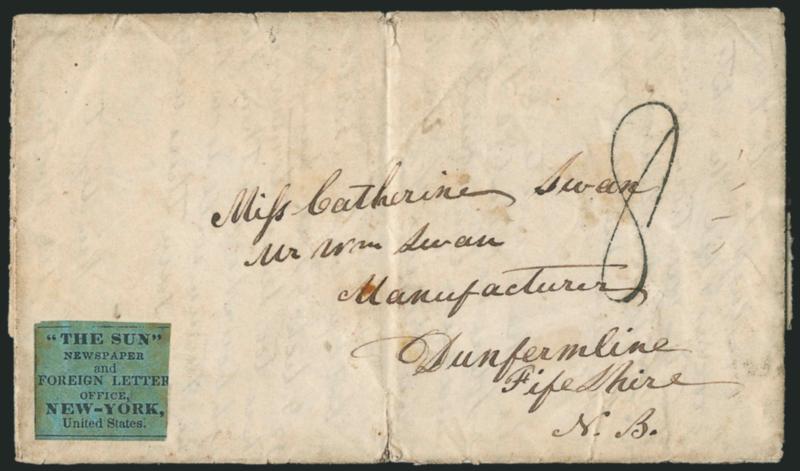 8
Miss Catherine Swan
Mr Wm Swan
Manufacturer
Dunfermline
Fife Shire
N. B.
"THE SUN"
NEWSPAPER
and
FOREIGN LETTER
OFFICE,
NEW-YORK,
United States.